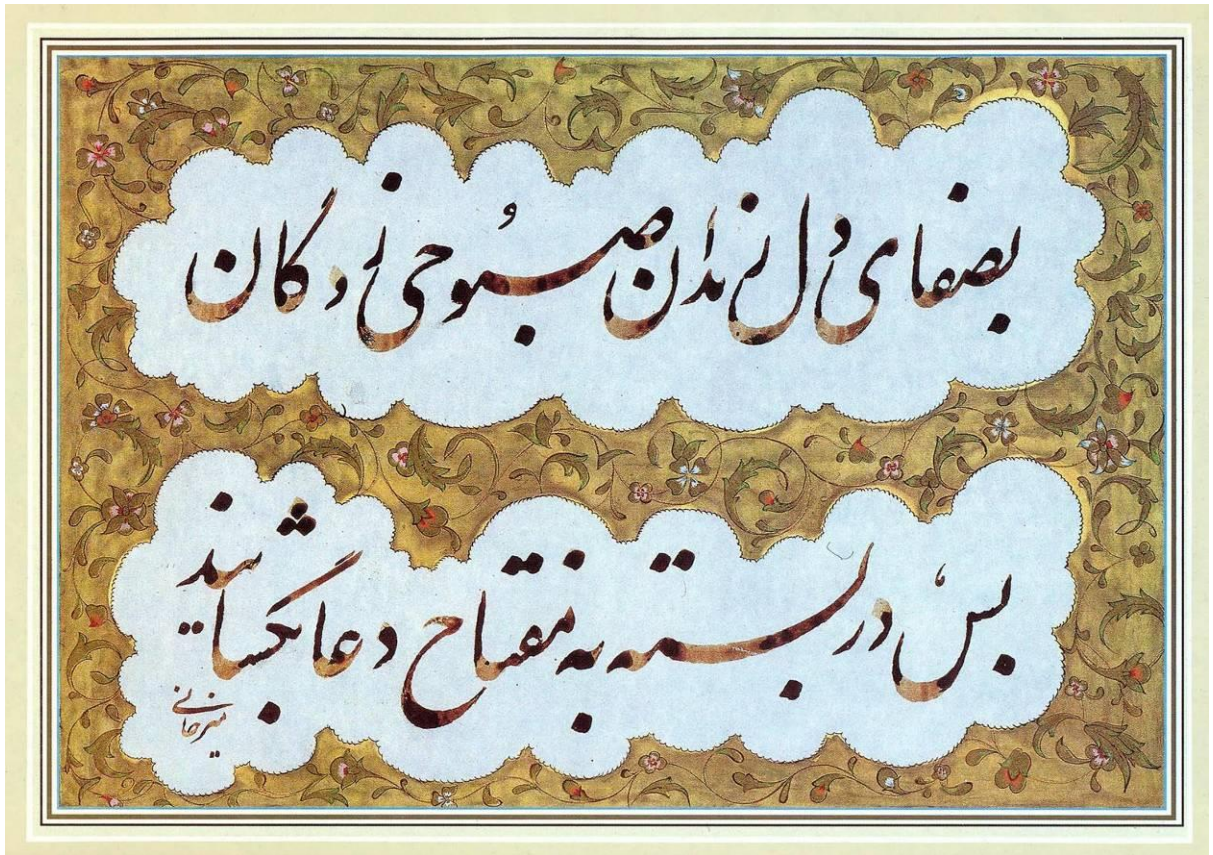 بصفای دل رندان صبوحی زدگان
بس در بسته به مفتاح دعا بگشایند
میرخانی